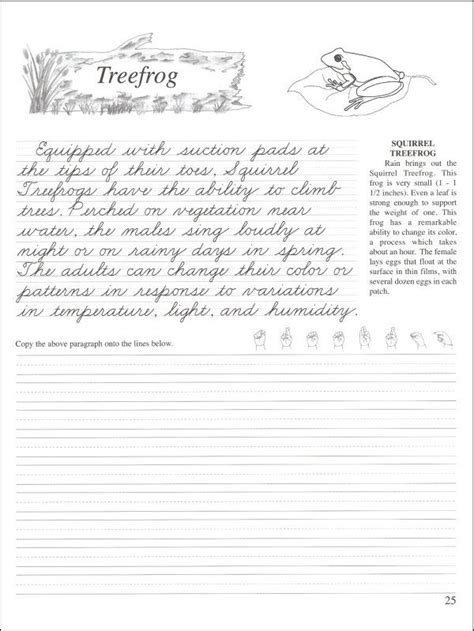 Treefrog
Equipped with suction pads at
the tips of their toes, Squirrel
Treefrogs have the ability to climb
trees. Perched on vegetation near
water, the males sing loudly at
night or on rainy days in spring.
The adults can change their color or
patterns in response to variations
in temperature, light, and humidity.
SQUIRREL
TREEFROG
Rain brings out the
Squirrel Treefrog. This
frog is very small (1 - 1
1/2 inches). Even a leaf is
strong enough to support
the weight of one. This
frog has a remarkable
ability to change its color,
a process which takes
about an hour. The female
lays eggs that float at the
surface in thin films, with
several dozen eggs in each
patch.
Copy the above paragraph onto the lines below.
25